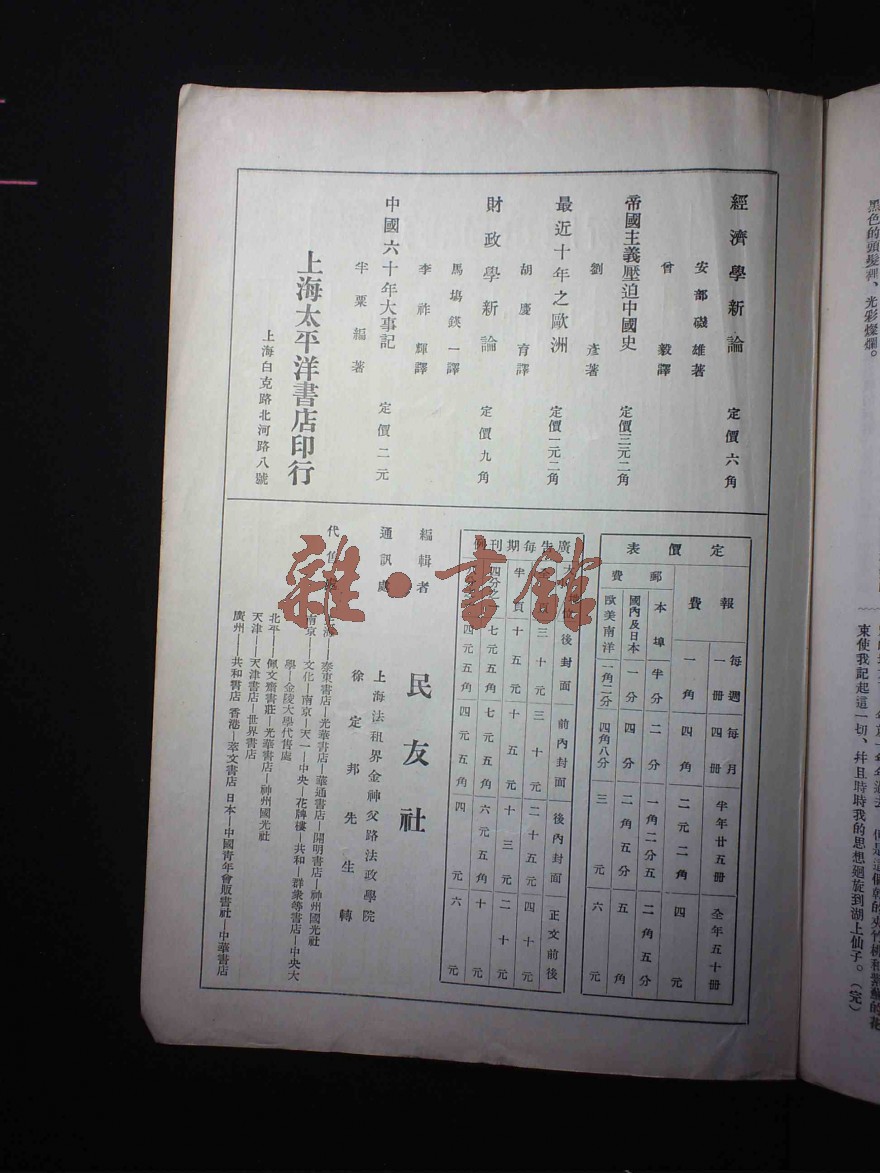 經濟學新論
安部磯雄著
曾毅譯
定價六角
帝國主義壓迫中國史
劉彥著
定價三元二角
最近十年之歐洲
胡慶育譯
定價一元二角
財政學新論
馬場鍈一譯
李祚輝譯
定價九角
中國六十年大事記
半粟編著
定價二元
上海太平洋書店印行
上海白克路北河路八號
定價表
報費
郵費
本埠
國內及日本
歐美南洋
每週一冊
一角
半分
一分
一角二分
每月四冊
四角
二分
四分
四角八分
半年廿五冊
二元二角
一角二分五
二角五分
三元
全年五十冊
四元
二角五分
五角
六元
廣告每期刊例
後封面
三十元
十五元
七元五角
四元五角
前內封面
三十元
十五元
七元五角
四元五角
後內封面
二十五元
十三元
六元五角
四元
正文前後
四十元
二十元
十元
六元
編輯者
民友社
通訊處
上海法租界金神父路法政學院
徐定邦先生轉
代售處
上海—泰東書店—光華書店—華通書店—開明書店—神州國光社
南京—文化—南京—天一—中央—花牌樓—共和—群衆等書店—中央大
學—金陵大學代售處
北平—佩文齋書莊—光華書店—神州國光社
天津—天津書店—世界書店
廣州—共和書店 香港—萃文書店 日本—中國青年會販書社—中華書店
雜·書館
黑色的頭髮裡、光彩燦爛。
束使我記起這一切、并且時時我的思想廻旋到湖上仙子。(完)